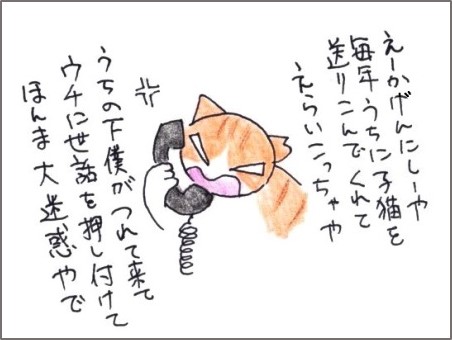 えーかげんにしーや
毎年うちに子猫を
送りこんでくれて
えらいこっちゃや
うちの下僕がつれて来て
ウチに世話を押し付けて
ほんま大迷惑やで